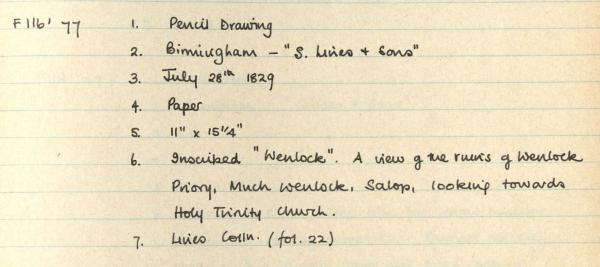 F116' 77 1. Pencil Drawing
2. Birmingham - "S. Lines + Sons"
3. July 28th 1829
4. Paper
5. 11" x 15¼"
6. Inscribed "Wenlock". A view of the ruins of Wenlock
Priory, Much Wenlock, Salop, looking towards
Holy Trinity Church.
7. Lines Colln. (fol. 22)